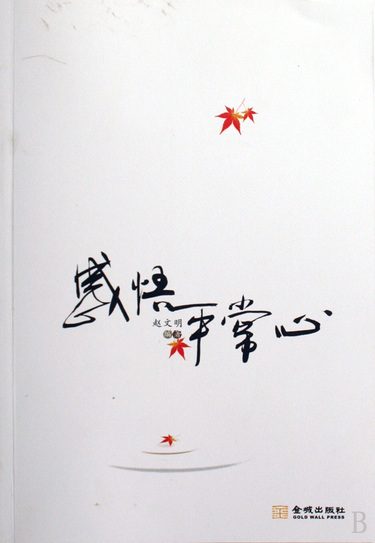 感悟平常心
赵文明
编著
金城出版社
GOLD WALL PRESS
B